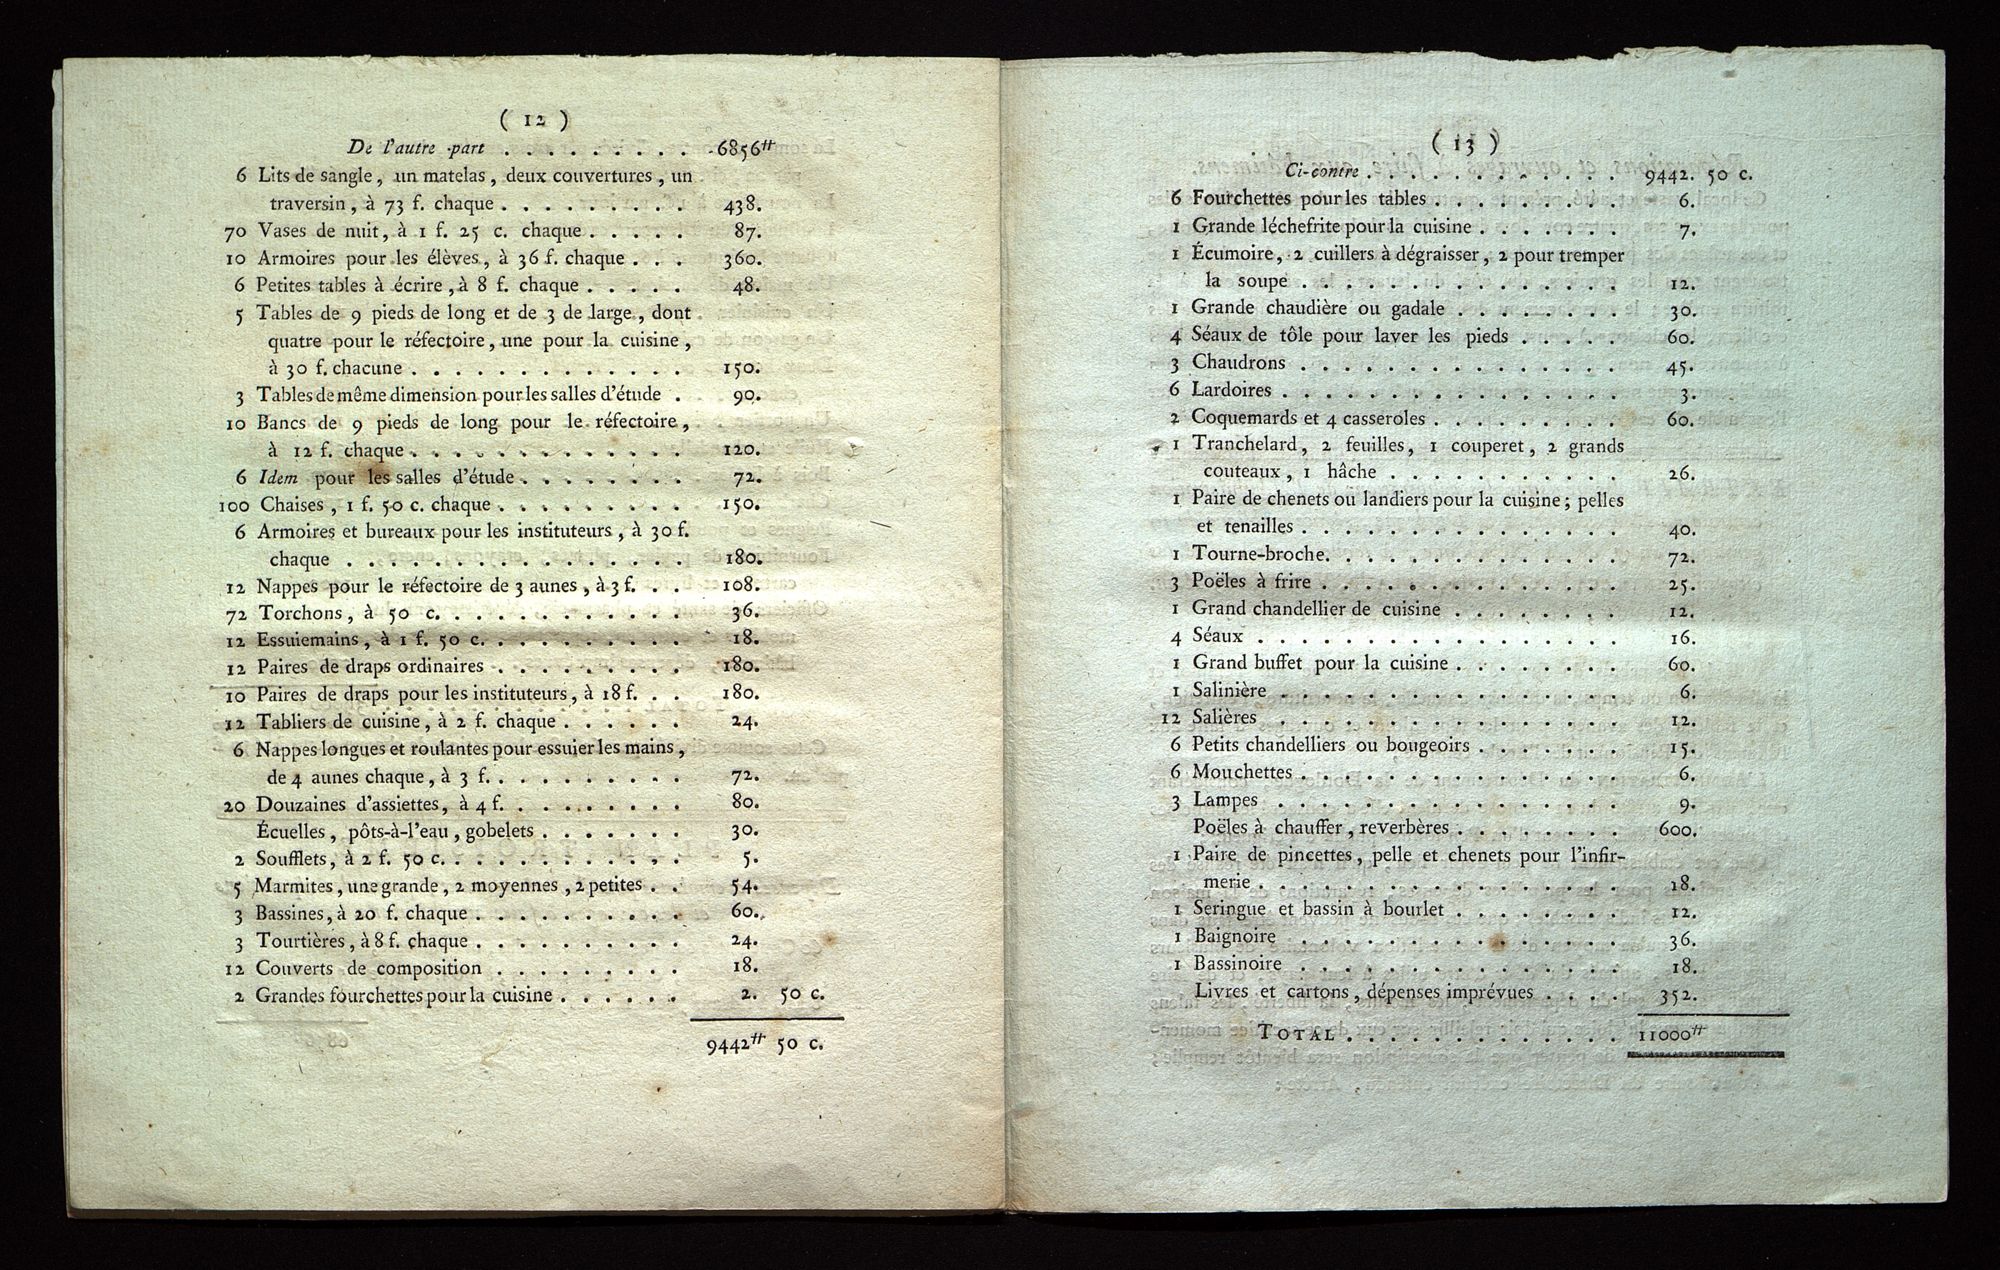 ( 12 )
De l'autre part . . . . . . . . . 6856 ₶
6 Lits de sangle, un matelas, deux couvertures, un
traversin, à 73 f. chaque . . . . . . . . . 438.
70 Vases de nuit, à 1 f. 25 c. chaque . . . . . 87.
10 Armoires pour les élèves, à 36 f. chaque . . . 360.
6 Petites tables à écrire, à 8 f. chaque . . . . . 48.
5 Tables de 9 pieds de long et de 3 de large, dont
quatre pour le réfectoire, une pour la cuisine,
à 30 f. chacune . . . . . . . . . . . . . 150.
3 Tables de même dimension pour les salles d'étude . 90.
10 Bancs de 9 pieds de long pour le réfectoire,
à 12 f. chaque . . . . . . . . . . . . . 120.
6 Idem pour les salles d'étude . . . . . . . . 72.
100 Chaises, 1 f. 50 c. chaque . . . . . . . . . 150.
6 Armoires et bureaux pour les instituteurs, à 30 f.
chaque . . . . . . . . . . . . . . . . 180.
12 Nappes pour le réfectoire de 3 aunes, à 3 f. . . 108.
72 Torchons, à 50 c. . . . . . . . . . . . 36.
12 Essuiemains, à 1 f. 50 c. . . . . . . . . . 18.
12 Paires de draps ordinaires . . . . . . . . . 180.
10 Paires de draps pour les instituteurs, à 18 f. . . 180.
12 Tabliers de cuisine, à 2 f. chaque . . . . . . 24.
6 Nappes longues et roulantes pour essuier les mains,
de 4 aunes chaque, à 3 f. . . . . . . . . . 72.
20 Douzaines d'assiettes, à 4 f. . . . . . . . . 80.
Écuelles, pôts-à-l'eau, gobelets . . . . . . . 30.
2 Soufflets, à 2 f. 50 c. . . . . . . . . . . 5.
5 Marmites, une grande, 2 moyennes, 2 petites . . 54.
3 Bassines, à 20 f. chaque . . . . . . . . . . 60.
3 Tourtières, à 8 f. chaque . . . . . . . . . . 24.
12 Couverts de composition . . . . . . . . . 18.
2 Grandes fourchettes pour la cuisine . . . . . . 2. 50 c.
9442 ₶ 50 c.
( 13 )
Ci-contre . . . . . . . . . . . . 9442. 50 c.
6 Fourchettes pour les tables . . . . . . . . . 6.
1 Grande léchefrite pour la cuisine . . . . . . . 7.
1 Écumoire, 2 cuillers à dégraisser, 2 pour tremper
la soupe . . . . . . . . . . . . . . . 12.
1 Grande chaudière ou gadale . . . . . . . . 30.
4 Séaux de tôle pour laver les pieds . . . . . 60.
3 Chaudrons . . . . . . . . . . . . . . . 45.
6 Lardoires . . . . . . . . . . . . . . . . 3.
2 Coquemards et 4 casseroles . . . . . . . . . 60.
1 Tranchelard, 2 feuilles, 1 couperet, 2 grands
couteaux, 1 hâche . . . . . . . . . . . 26.
1 Paire de chenets ou landiers pour la cuisine; pelles
et tenailles . . . . . . . . . . . . . . . 40.
1 Tourne-broche. . . . . . . . . . . . . . 72.
3 Poëles à frire . . . . . . . . . . . . . . 25.
1 Grand chandellier de cuisine . . . . . . . . 12.
4 Séaux . . . . . . . . . . . . . . . . . 16.
1 Grand buffet pour la cuisine . . . . . . . . 60.
1 Salinière . . . . . . . . . . . . . . . . 6.
12 Salières . . . . . . . . . . . . . . . . 12.
6 Petits chandelliers ou bougeoirs . . . . . . . 15.
6 Mouchettes . . . . . . . . . . . . . . . 6.
3 Lampes . . . . . . . . . . . . . . . . 9.
Poëles à chauffer, reverbères . . . . . . . . 600.
1 Paire de pincettes, pelle et chenets pour l'infir-
merie . . . . . . . . . . . . . . . . . 18.
1 Seringue et bassin à bourlet . . . . . . . . 12.
1 Baignoire . . . . . . . . . . . . . . . 36.
1 Bassinoire . . . . . . . . . . . . . . . 18.
Livres et cartons, dépenses imprévues . . . . 352.
TOTAL . . . . . . . . . . . . . 11000 ₶